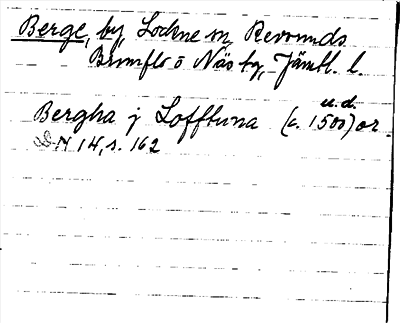 Berge, by, Lockne sn, Revsunds
Brunflo o Näs tg, Jämtl. l.
u.d.
Bergha j Lofftuna (c. 1500) or
N 14, s. 162